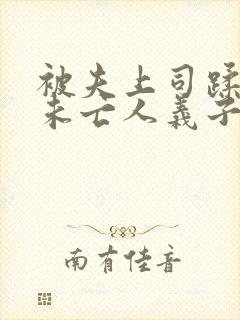 被夫上司蹂
未亡人義子
南有佳音